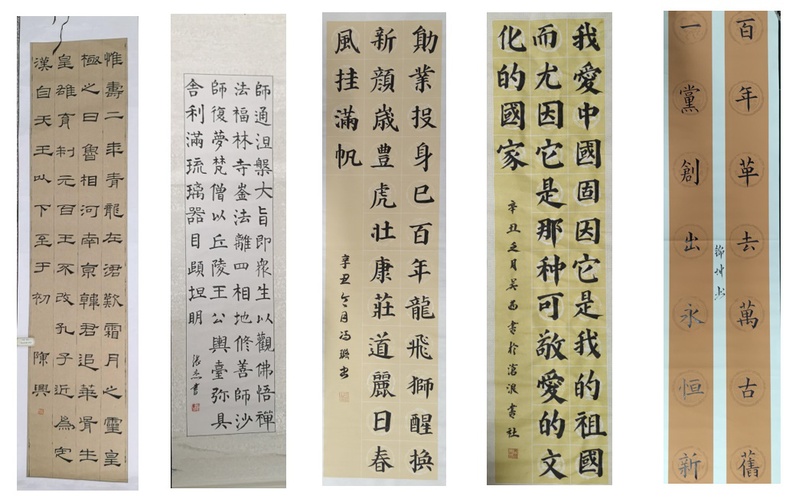 惟壽二年青龍在涒歎霜月之靈皇
極之日魯相河南京韓君追華胥生
皇雄育制元百王不改孔子近為定
漢自天王以下至于初 陳興
師通涅槃大旨即衆生以觀佛悟禪
法福林寺崟法離四相地修善師沙
師復夢梵僧以丘陵王公輿臺弥具
舍利滿琉璃器目顕坦明
勛業投身已百年龍飛獅醒換
新顔歲豊虎壯康莊道麗日春
風挂滿帆
辛丑冬月馮書
我愛中國固因它是我的祖國
而尤因它是那种可敬愛的文
化的國家
辛丑月書於滄浪書社
百年革去萬古舊
一黨創出永恒新